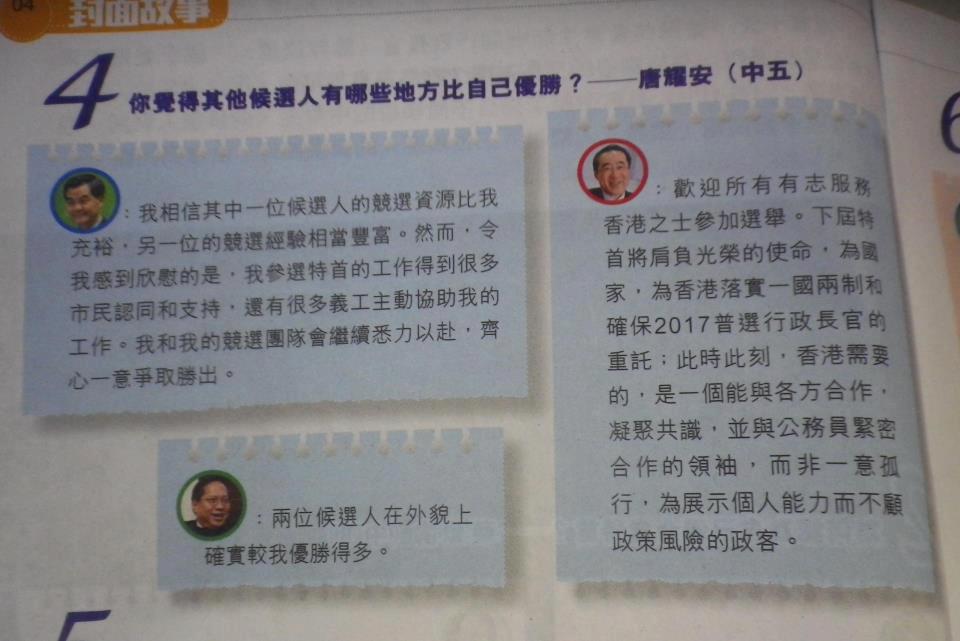 04
封面故事
4
你覺得其他候選人有哪些地方比自己優勝?——唐耀安(中五)
:我相信其中一位候選人的競選資源比我
充裕,另一位的競選經驗相當豐富。然而,令
我感到欣慰的是,我參選特首的工作得到很多
市民認同和支持,還有很多義工主動協助我的
工作。我和我的競選團隊會繼續悉力以赴,齊
心一意爭取勝出。
:兩位候選人在外貌上
確實較我優勝得多。
:歡迎所有有志服務
香港之士參加選舉。下屆特
首將肩負光榮的使命,為國
家,為香港落實一國兩制和
確保2017普選行政長官的
重託;此時此刻,香港需要
的,是一個能與各方合作,
凝聚共識,並與公務員緊密
合作的領袖,而非一意孤
行,為展示個人能力而不顧
政策風險的政客。
5
6